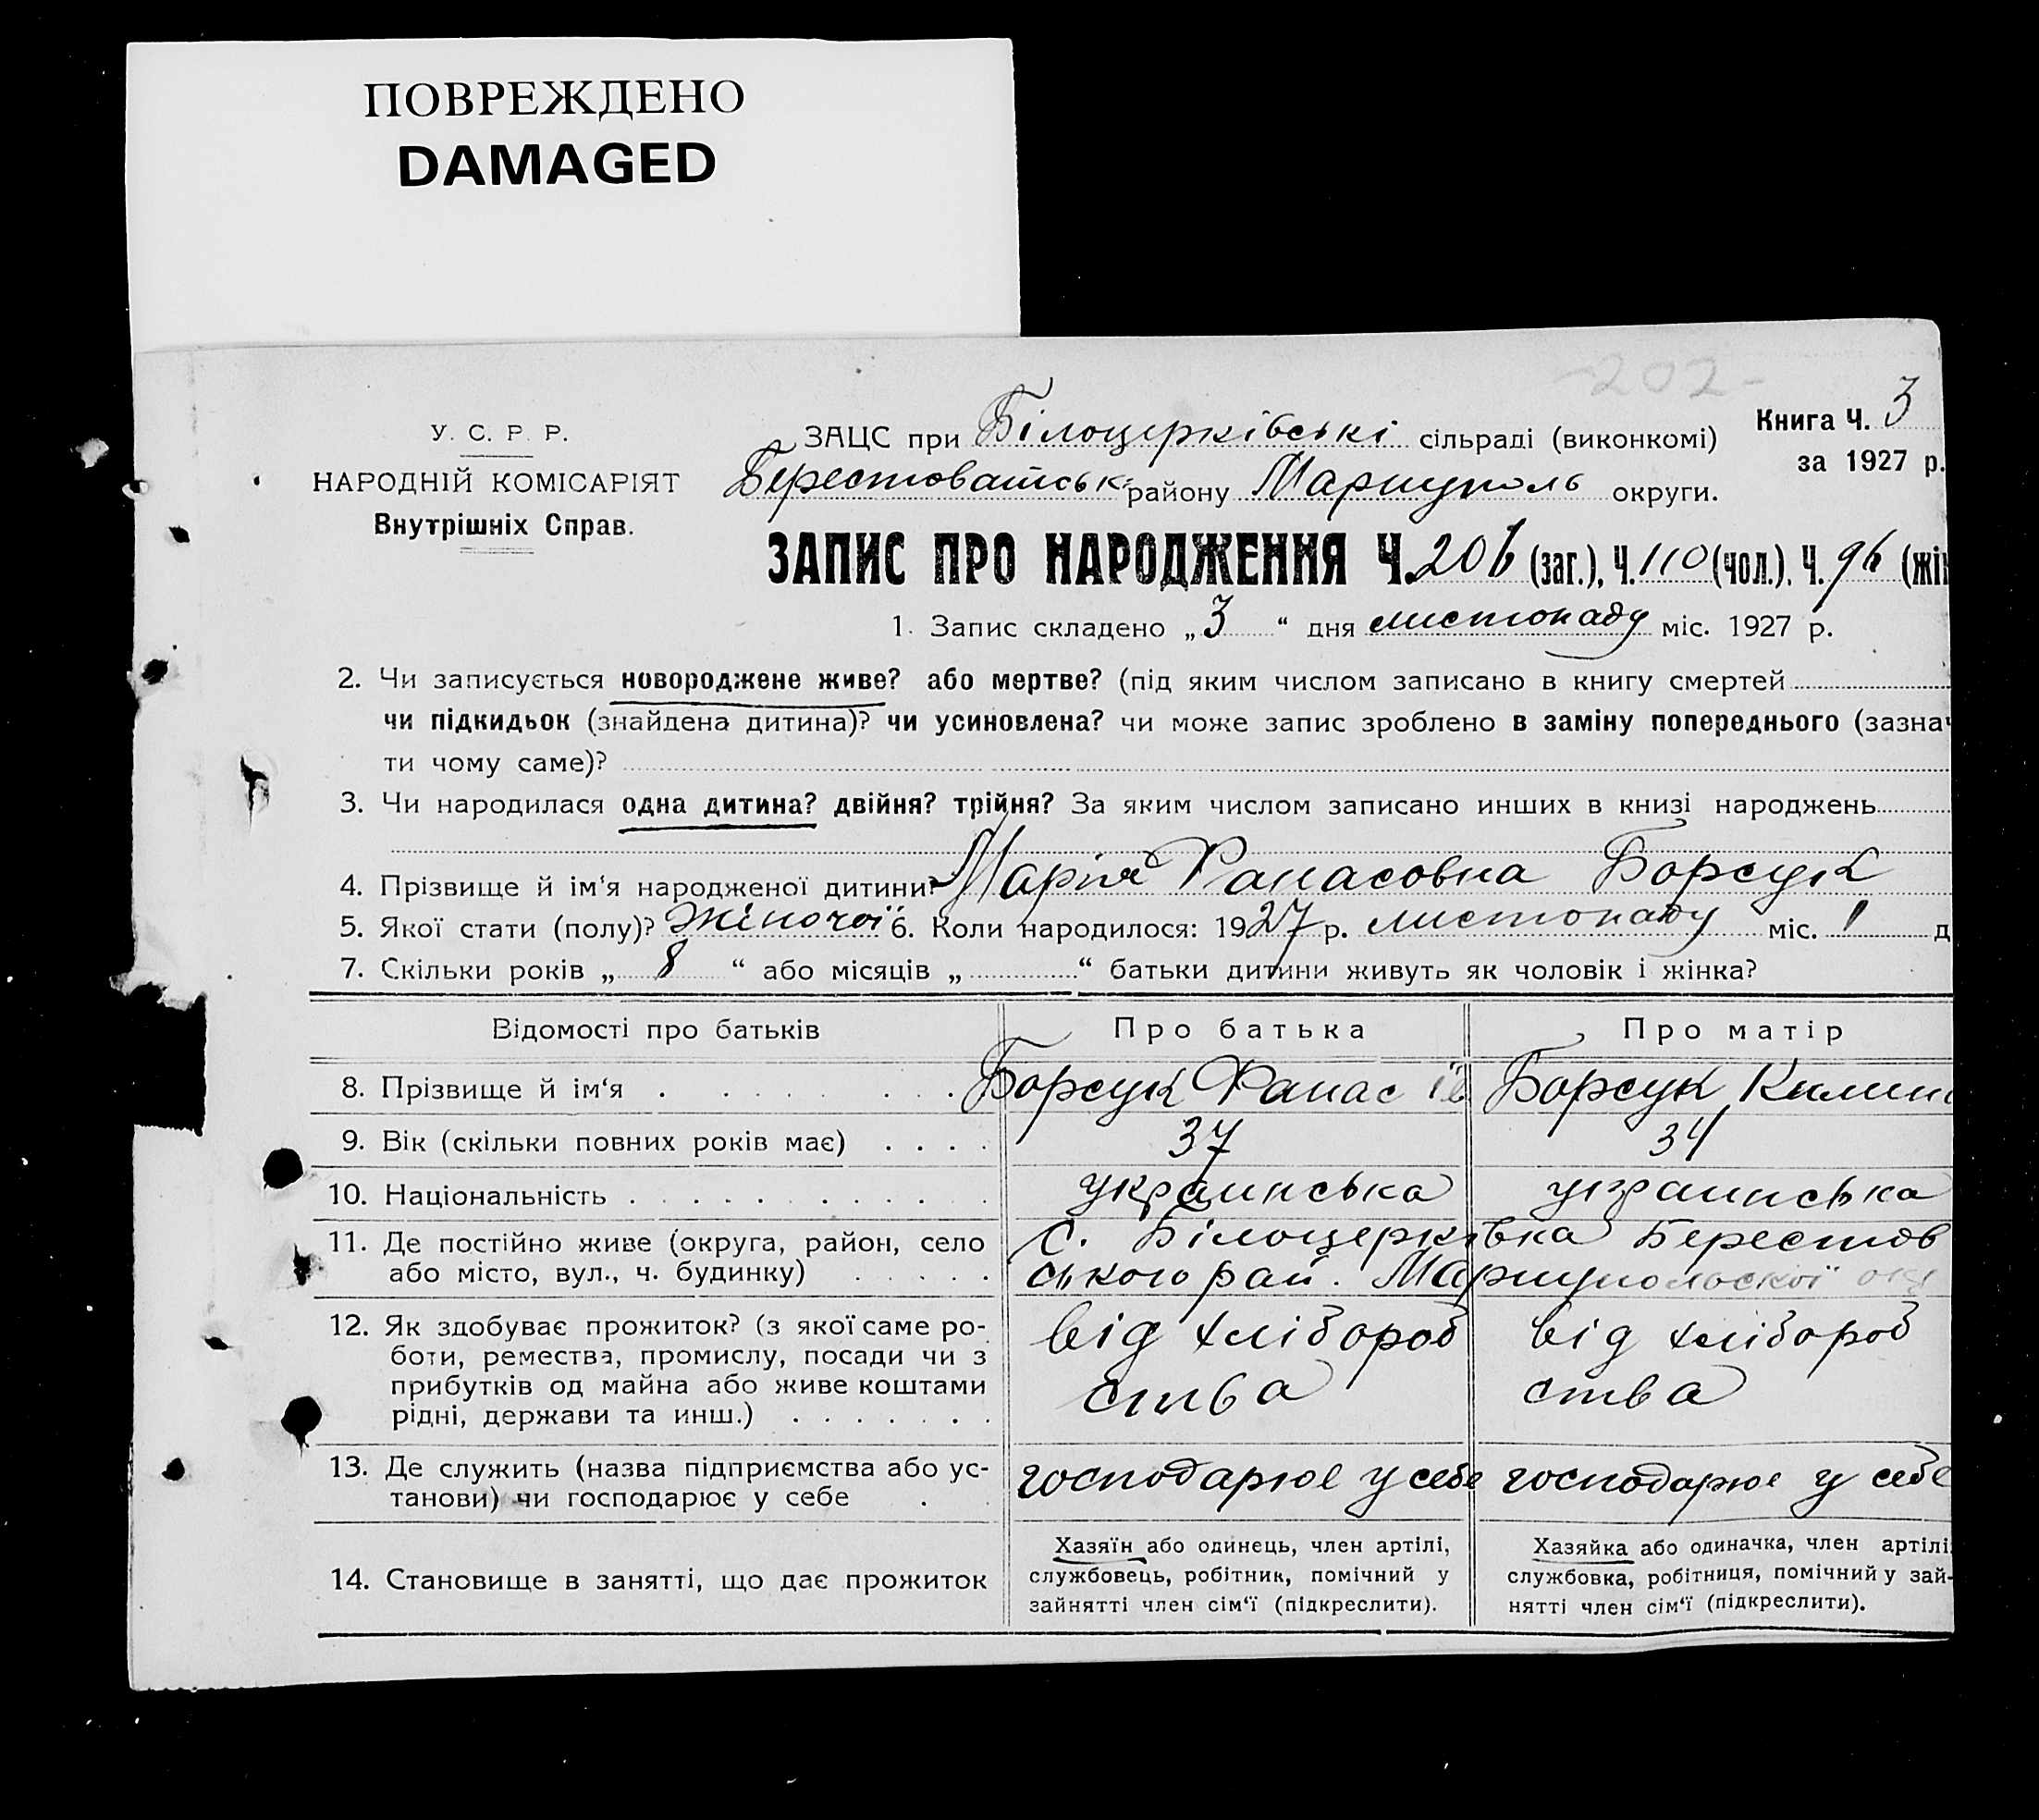 ПОВРЕЖДЕНО
DAMAGED
202
Книга Ч. 3
за 1927 р.
У. С. Р. Р.
НАРОДНІЙ КОМІСАРІЯТ
Внутрішніх Справ.
ЗАЦС при Білоцерківські сільраді (виконкомі)
Берестоватськ району Маріуполь округи.
ЗАПИС ПРО НАРОДЖЕННЯ Ч. 206 (заг.), Ч. 110 (чол.). Ч. 96 (жін
1. Запис складено „ 3 “ дня листопаду міс. 1927 р.
2. Чи записується новороджене живе? або мертве? (під яким числом записано в книгу смертей
чи підкидьок (знайдена дитина)? чи усиновлена? чи може запис зроблено в заміну попереднього (зазна
ти чому саме)?
3. Чи народилася одна дитина? двійня? трійня? За яким числом записано инших в книзі народжень
4. Прізвище й ім‘я народженої дитини? Марія Фанасовна Борсук
5. Якої стати (полу)? Жіночої 6. Коли народилося: 1927 р. листопаду міс. 1 д
7. Скільки років „ 8 “ або місяців „ “ батьки дитини живуть як чоловік і жінка?
Відомості про батьків Про батька Про матір
8. Прізвище й ім‘я Борсук Фанас Ів Борсук Килин
9. Вік (скільки повних років має) 37 34
10. Національність украинська украинська
11. Де постійно живе (округа, район, село
або місто, вул., ч. будинку)
с. Білоцерківка Берестов
ського рай. Маріупольскої окр
12. Як здобуває прожиток? (з якої саме ро-
боти, ремества, промислу, посади чи з
прибутків од майна або живе коштами
рідні, держави та инш.)
від хлібороб
ства
від хлібороб
ства
13. Де служить (назва підприємства або ус-
танови) чи господарює у себе
господарює у себе
господарює у себе
14. Становище в занятті, що дає прожиток
Хазяїн або одинець, член артілі,
службовець, робітник, помічний у
зайнятті член сім‘ї (підкреслити).
Хазяйка або одиначка, член артілі
службовка, робітниця, помічний у зай-
нятті член сім‘ї (підкреслити).